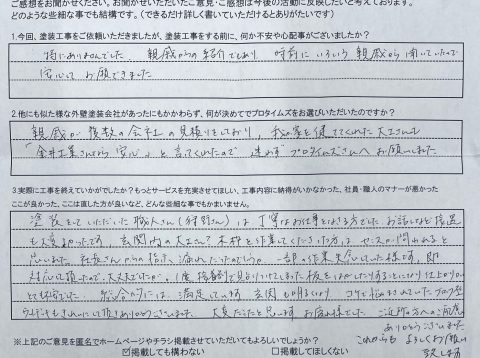 ご感想をお聞かせください。お聞かせいただいたご意見・ご感想は今後の活動に反映したいと考えております。
どのような些細な事でも結構です。（できるだけ詳しく書いていただけるとありがたいです）
1.今回、塗装工事をご依頼いただきましたが、塗装工事をする前に、何か不安や心配事がございましたか？
特にありませんでした。親戚からの紹介でもあり、時前にいろいろ親戚から聞いていたので
安心してお願いできました
2.他にも似た様な外壁塗装会社があったにもかかわらず、何が決めてでプロタイムズをお選びいただいたのですか？
親戚が複数の会社の見積りをしており、我が家を建ててくれた大工さんも
「金井工業さんなら安心」と言ってくれたので迷わずプロタイムズさんへお願いしました
3.実際に工事を終えていかがでしたか？もっとサービスを充実させてほしい、工事内容に納得がいかなかった、社員・職人のマナーが悪かった
ここが良かった、ここは直した方が良いなど、どんな些細な事でもかまいません。
塗装をしていただいた職人さん は丁寧なお仕事をなさる方でした お話しなど接遇
も大変良かったです 玄関内の大工さん？木枠を作業してくださった方は センスが問われると
思いました。社長さんからの指示
一部の作業
対応して頂いたので、大丈夫でしたが、
総合的には満足しています 玄関も明るくなり
大変だったと思います お疲れ様でした ご近所の方へのご配慮
ありがとうございました
これからもよろしくお願い
致します
※上記のご意見を匿名でホームページやチラシ掲載させていただいてもよろしいでしょうか？
☑掲載しても構わない □掲載してほしくない